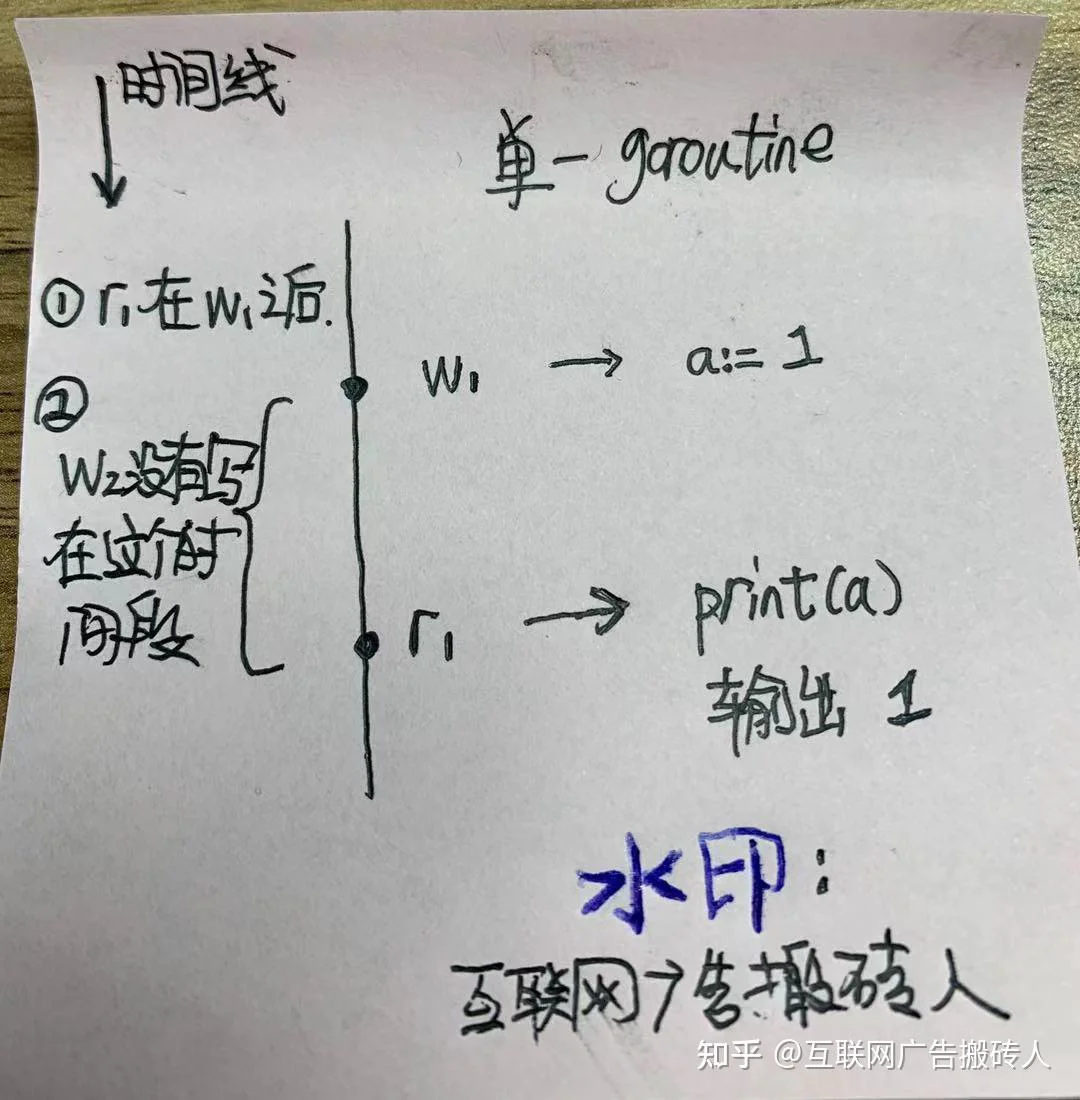 时间线
单一 goroutine
① r₁在w₁之后.
w₁ → a:= 1
②
W₂没有写
在这个时
间段
r₁ → print(a)
输出 1
水印:
互联网广告搬砖人
知乎 @互联网广告搬砖人